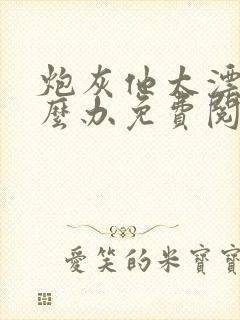 炮灰他太漂
麼办免費閱
愛笑的米寶寶